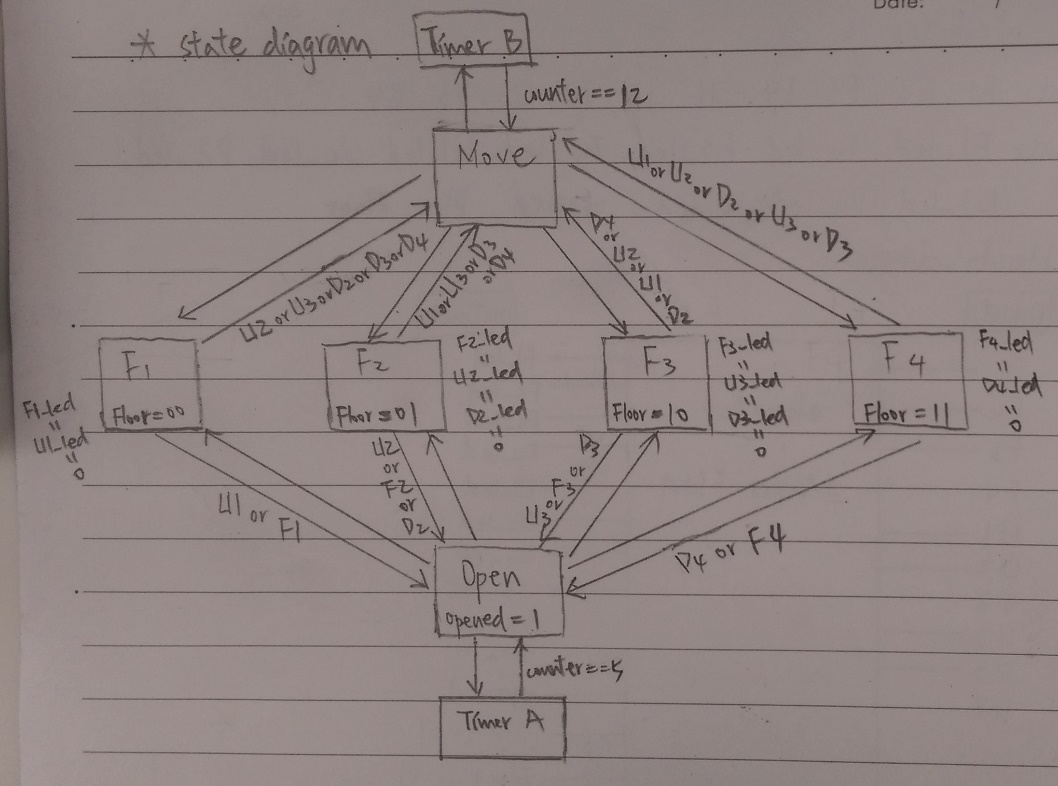 Date: /
* state diagram
Timer B
counter==12
Move
U1 or U2 or D2 or U3 or D3
U2 or U3 or D2 or D3 or D4
U1 or U3 or D3
or D4
D4
or
U2
or
U1
or
D2
F1
Floor=00
F1_led
"
U1_led
"
0
F2
Floor=01
F2_led
"
U2_led
"
D2_led
"
0
F3
Floor=10
F3_led
"
U3_led
"
D3_led
"
0
F4
Floor=11
F4_led
"
D4_led
"
0
U1 or F1
U2
or
F2
or
D2
D3
or
F3
or
U3
D4 or F4
Open
opened=1
counter==5
Timer A